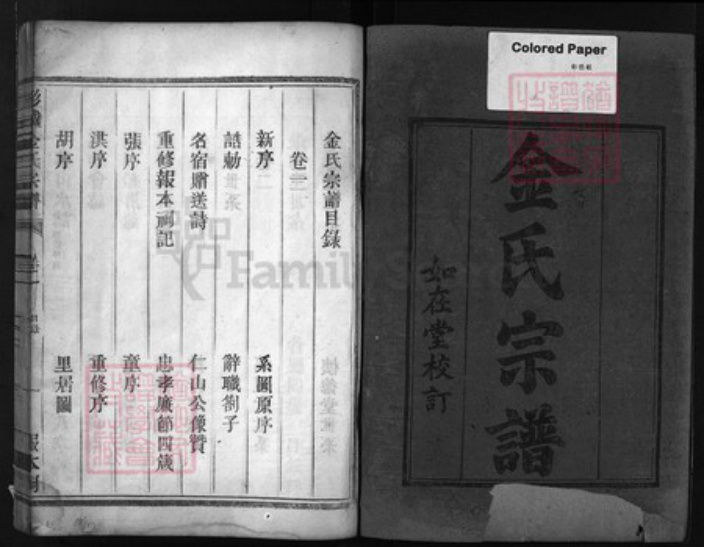 Colored Paper
金氏宗譜
如在堂校訂
金氏宗譜目錄
卷一
新序
系圖原序
誥勅
辭職劄子
名宿贈送詩
仁山公像贊
重修報本祠記
忠孝廉節四箴
張序
童序
洪序
重修序
胡序
里居圖
金氏宗譜
FamilySearch